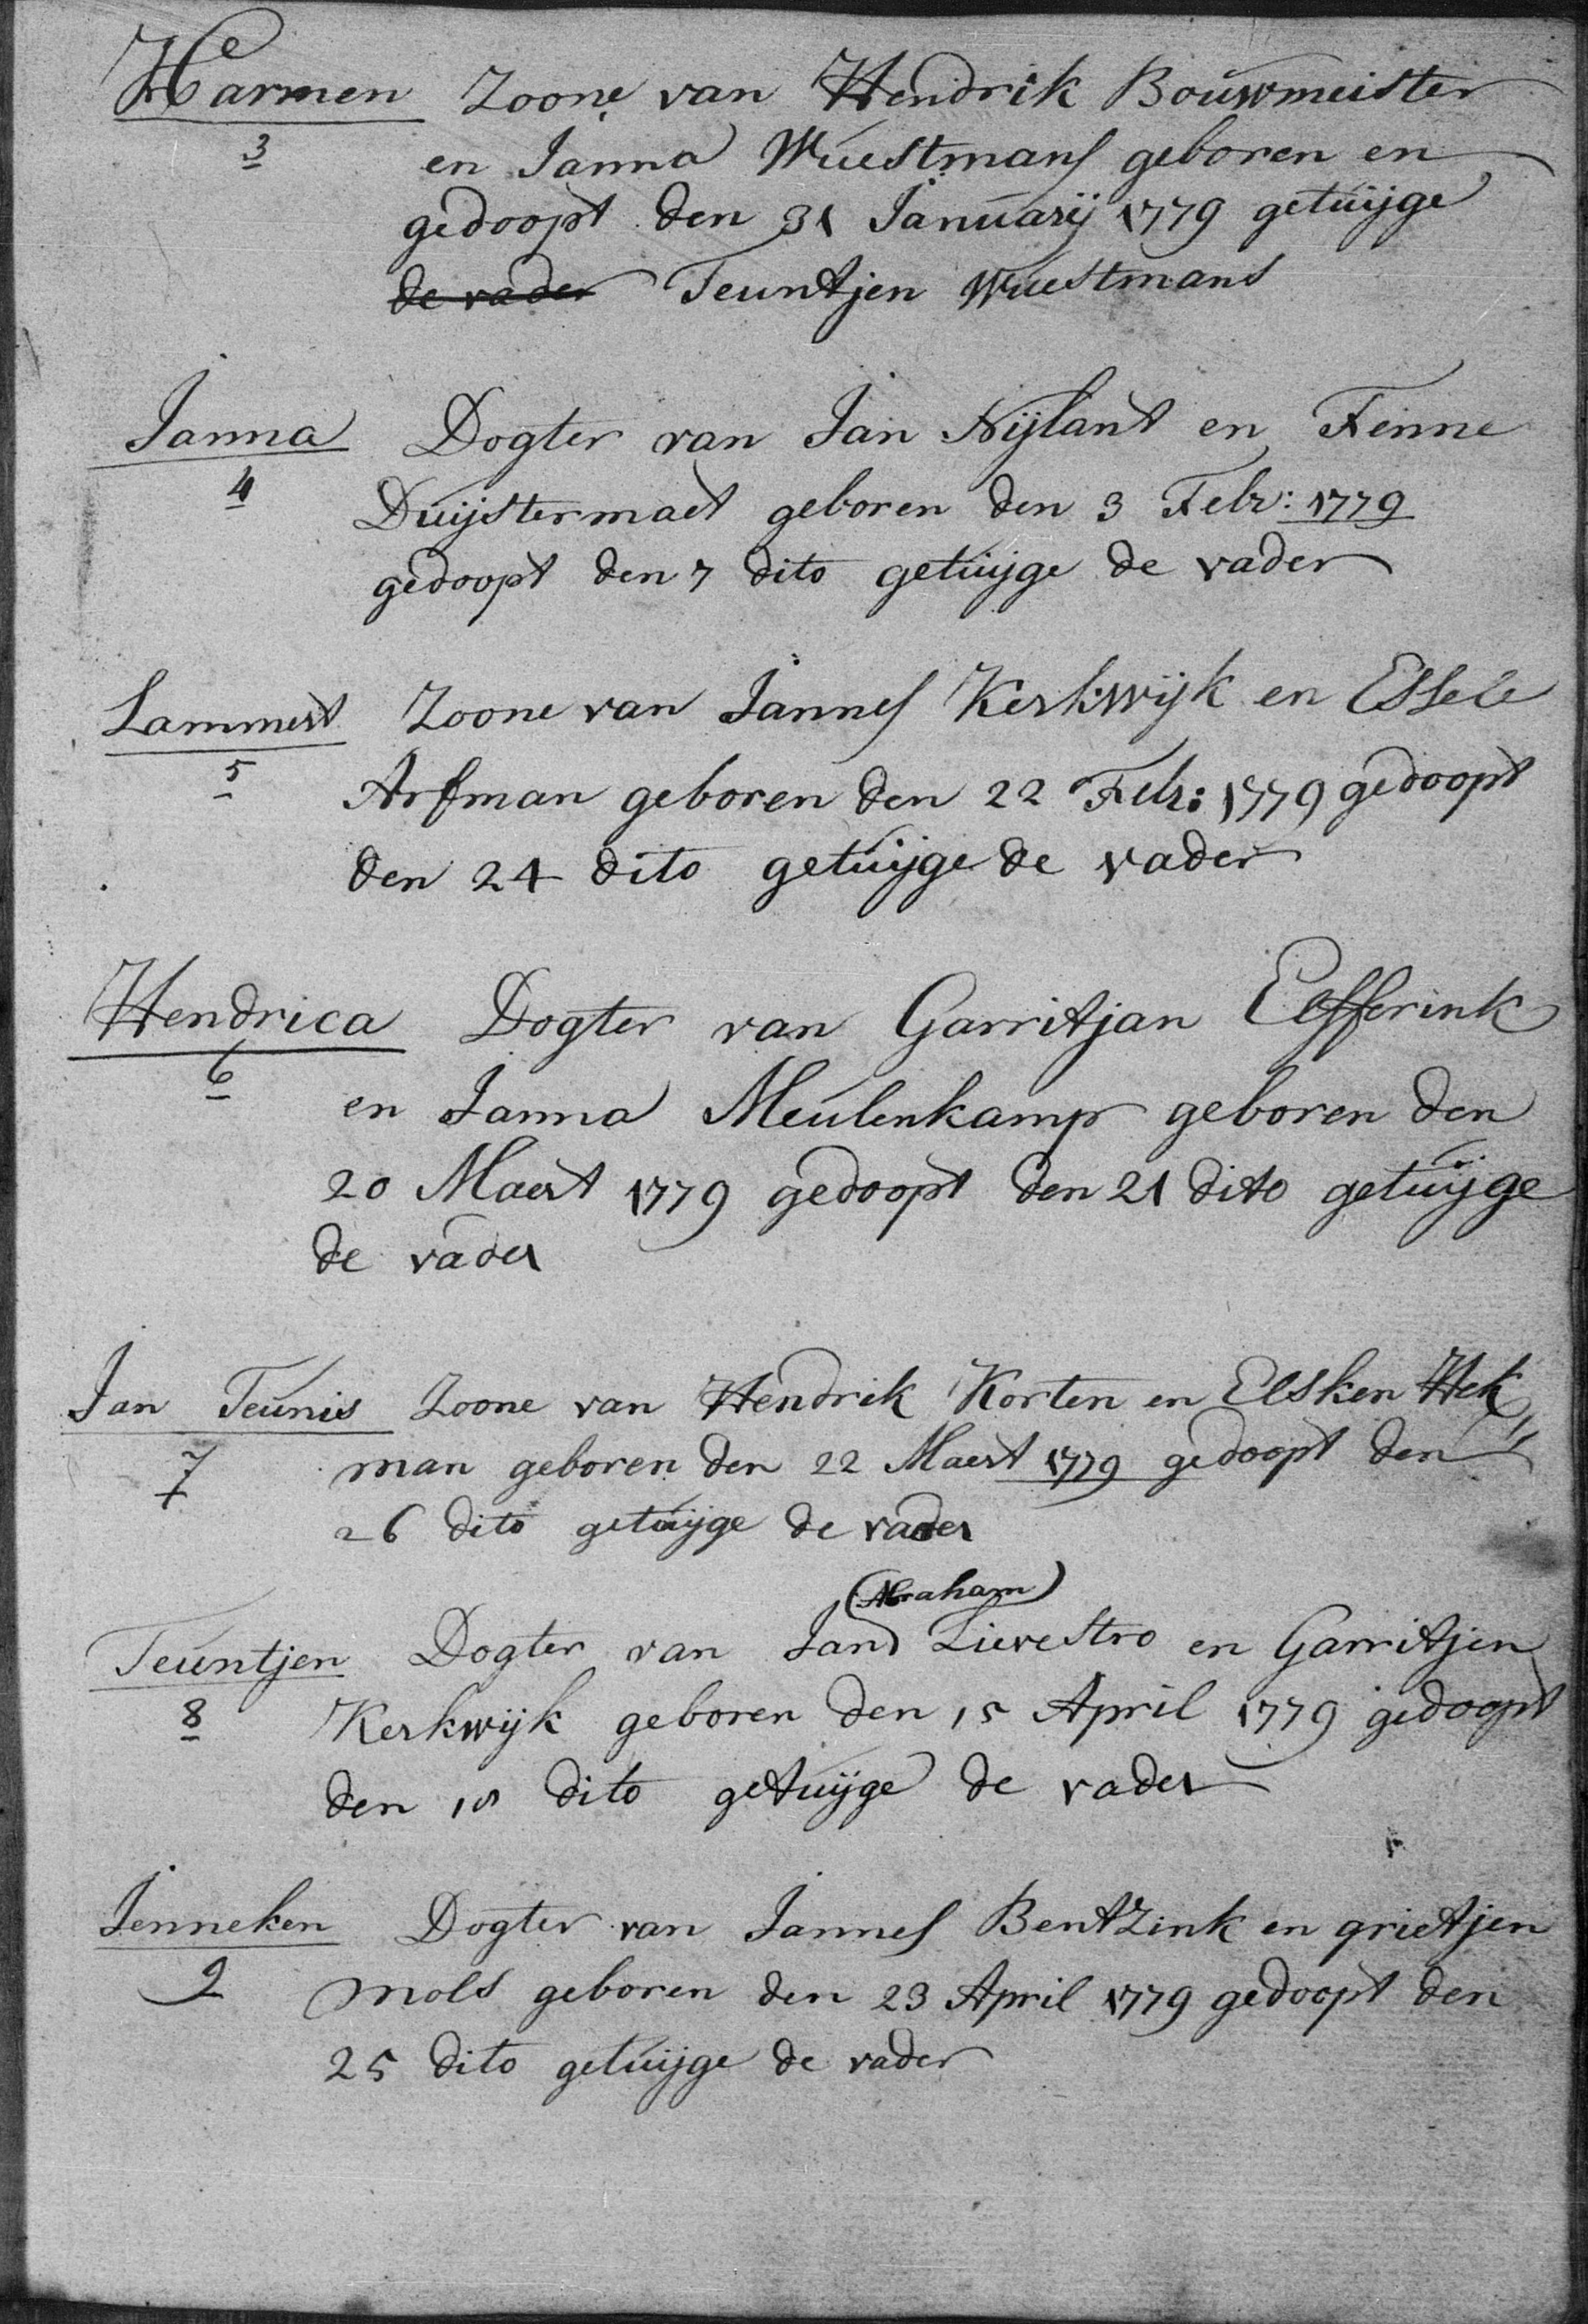 Harmen Zoone van Hendrik Bouwmeister
3 en Janna Wuestmans geboren en
gedoopt den 31 Januarij 1779 getuijge
de vader Teuntjen Wuestmans
Janna Dogter van Jan Nijlant en Fenne
4 Duijstermaet geboren den 3 Febr: 1779
gedoopt den 7 dito getuijge de vader
Lammert Zoone van Jannes Kerkwijk en Essele
5 Arfman geboren den 22 Febr: 1779 gedoopt
den 24 dito getuijge de vader
Hendrica Dogter van Garritjan Eefferink
6 en Janna Meulenkamp geboren den
20 Maert 1779 gedoopt den 21 dito getuijge
de vader
Jan Teunis Zoone van Hendrik Korten en Elsken Hek
7 man geboren den 22 Maert 1779 gedoopt den
26 dito getuijge de vader
(Abraham)
Teuntjen Dogter van Jan Lievestro en Garritjen
8 Kerkwijk geboren den 15 April 1779 gedoopt
den dito getuijge de vader
Jenneken Dogter van Jannes Bentzink en grietjen
9 mols geboren den 23 April 1779 gedoopt den
25 dito getuijge de vader